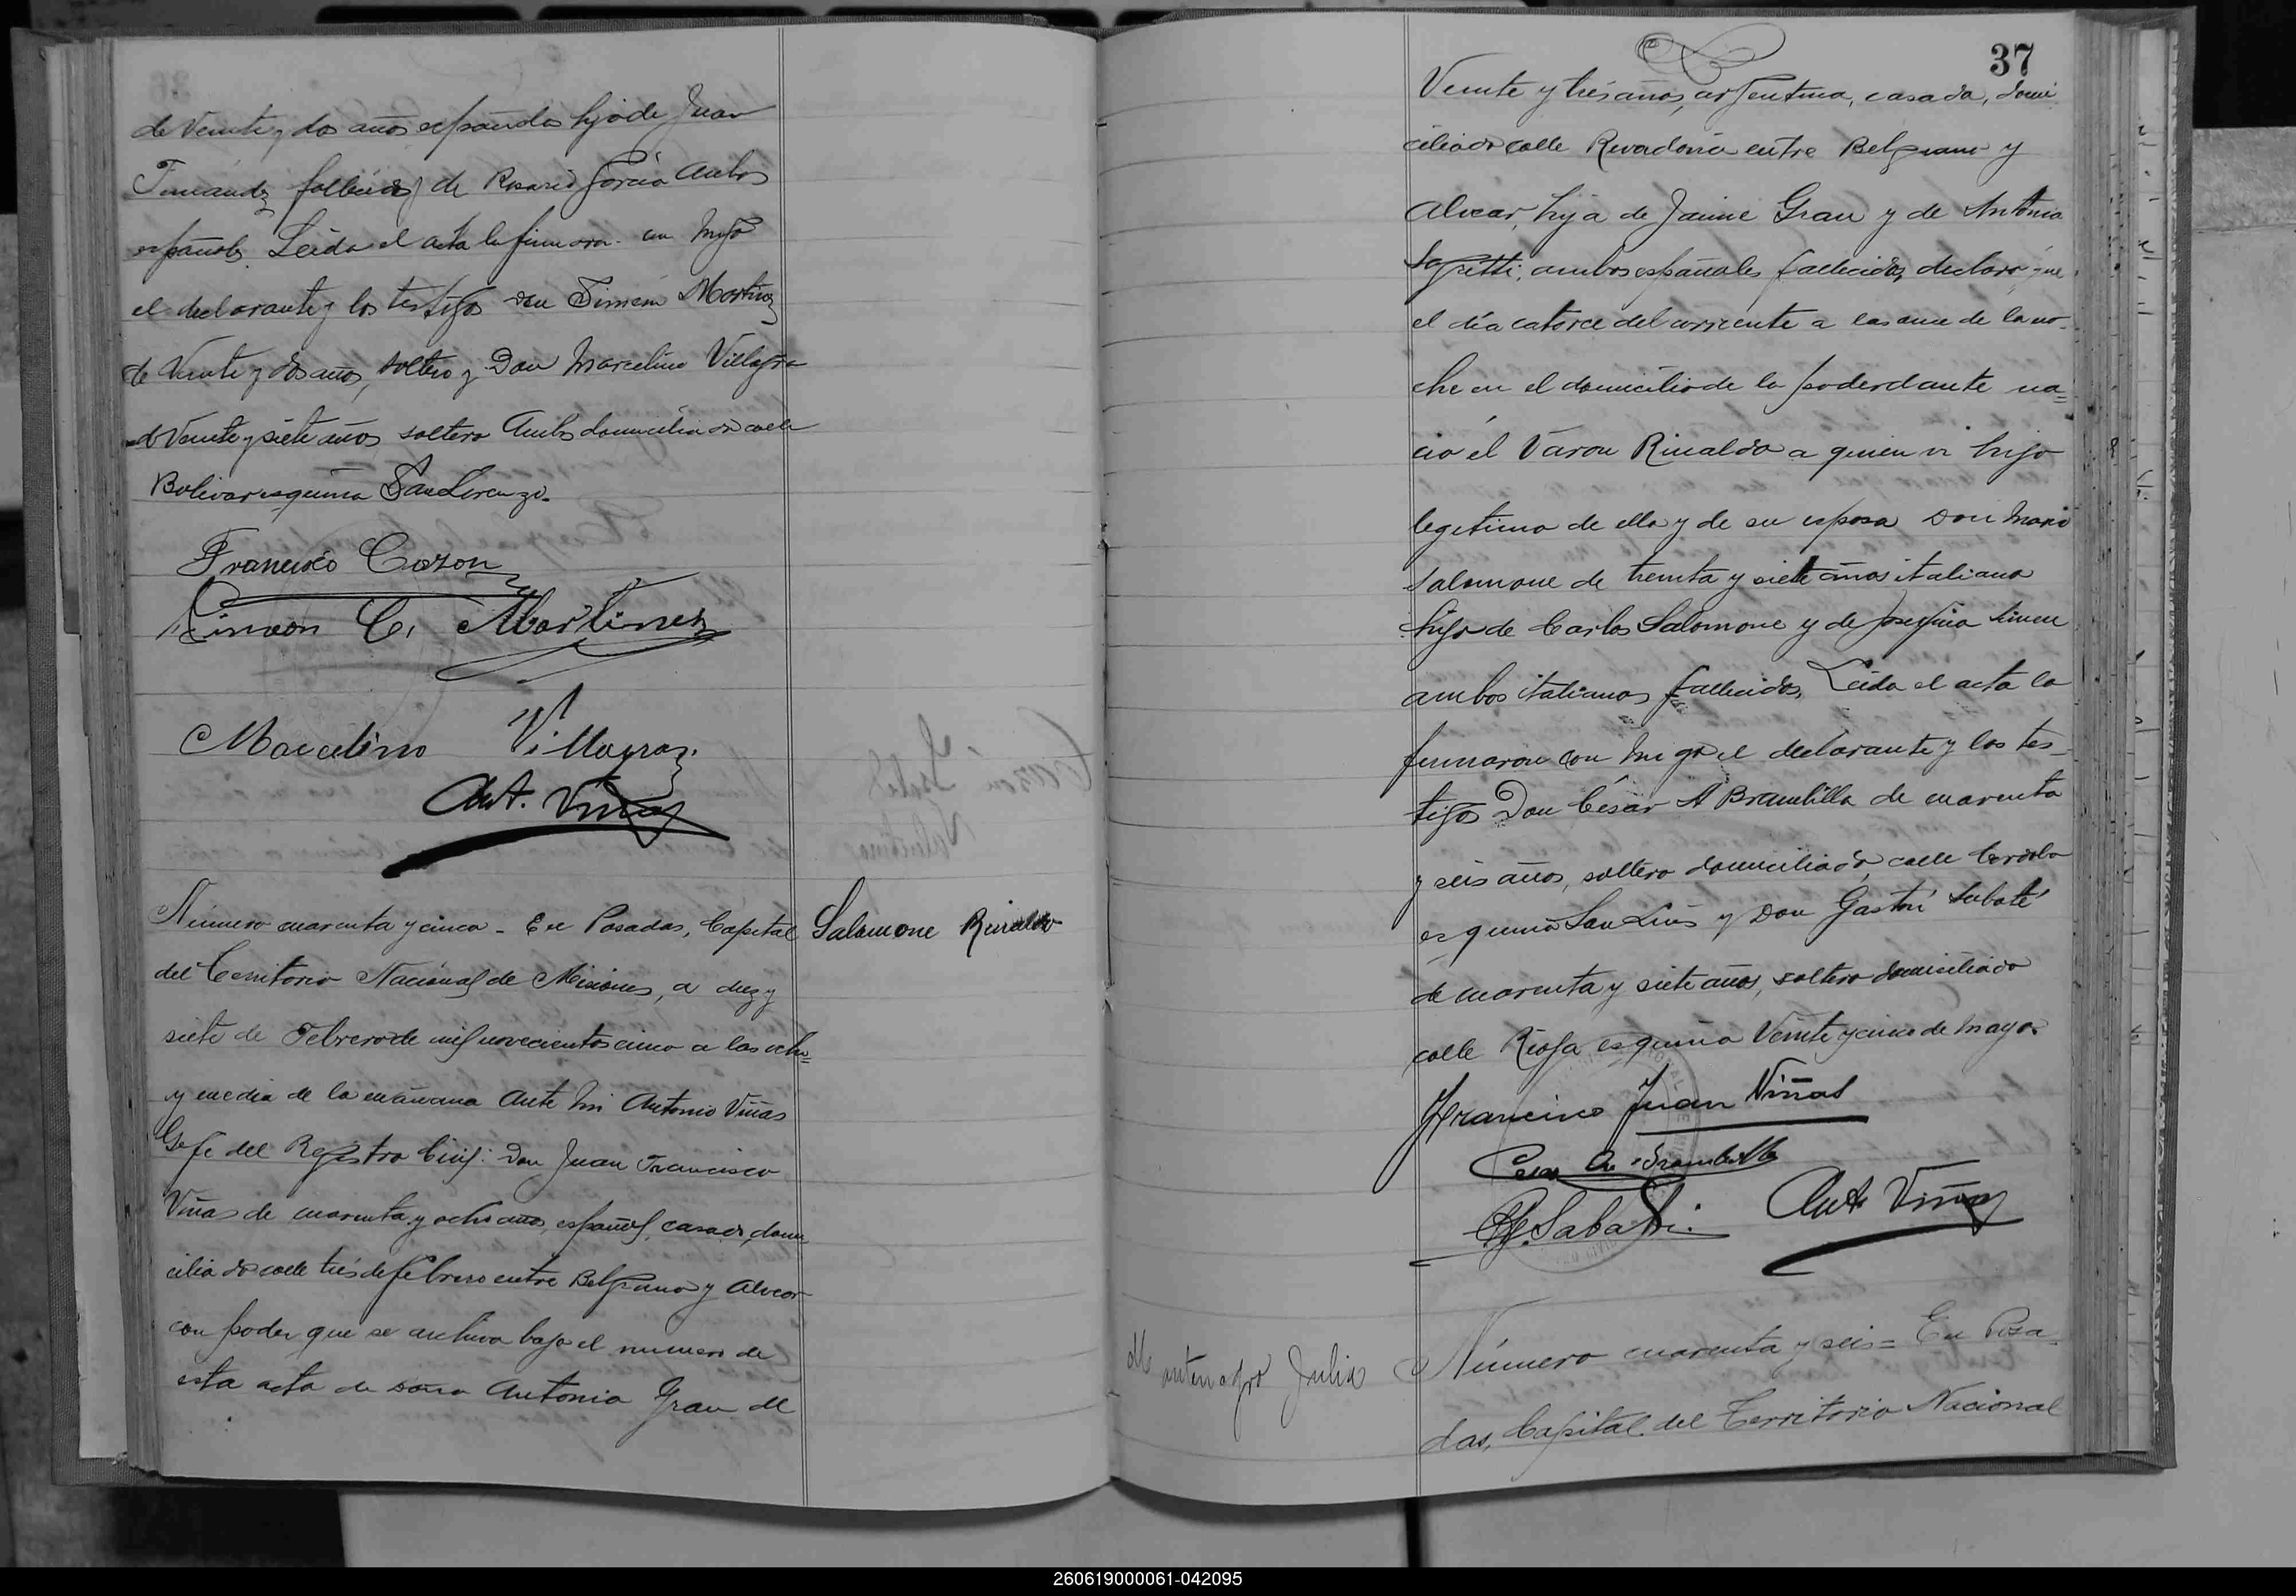 de Veinte y dos años españolas hija de Juan
Fernández fallecido y de Rosario García Ambos
españoles. Leida el acta la firmaron con migo
el declarante y los testigos don Simeón Martinez
de Veinte y dos años, soltero y Don Marcelino Villagra
de Veinte y siete años soltero Ambos domiciliado calle
Bolivar esquina San Lorenzo.
Francisco Cazon
Simeon C. Martinez
Marcelino Villagra
Ant. Viñas
Número cuarenta y cinco - En Posadas, Capital
Salomone Rinaldo
del Territorio Nacional de Misiones, a diez y
siete de Febrero de mil novecientos cinco a las ocho
y media de la mañana Ante mi Antonio Viñas
Gefe del Registro Civil: Don Juan Francisco
Viñas de cuarenta y ocho años, español, casado, domi
ciliado calle trés de febrero entre Belgrano y Alvear
con poder que se archiva bajo el numero de
esta acta de Doña Antonia Grau de
37
Veinte y trés años, argentina, casada, domi
ciliada calle Rivadavia entre Belgrano y
Alvear, hija de Jaime Grau y de Antonia
ambos españoles fallecidos, declaró que
el día catorce del corriente a las once de la no-
che en el domicilio de la poderdante na=
ció el Varon Rinaldo a quien vi hijo
legitimo de ella y de su esposo Don Mario
Salomone de treinta y siete años italiano
hijo de Carlos Salomone y de Josefina
ambos italianos fallecidos. Leida el acta la
firmaron con migo el declarante y los tes-
tigos Don César A Brambilla de cuarenta
y seis años, soltero domiciliado calle Cordoba
esquina San Luis y Don Gastón Sabaté
de cuarenta y siete años, soltero domiciliado
calle Rioja esquina Veinte y cinco de Mayo.
Francisco Juan Viñas
Cesar A. Brambilla
Ant. Viñas
Montenegro Julia
Número cuarenta y seis = En Posa-
das, Capital del Territorio Nacional
260619000061-042095